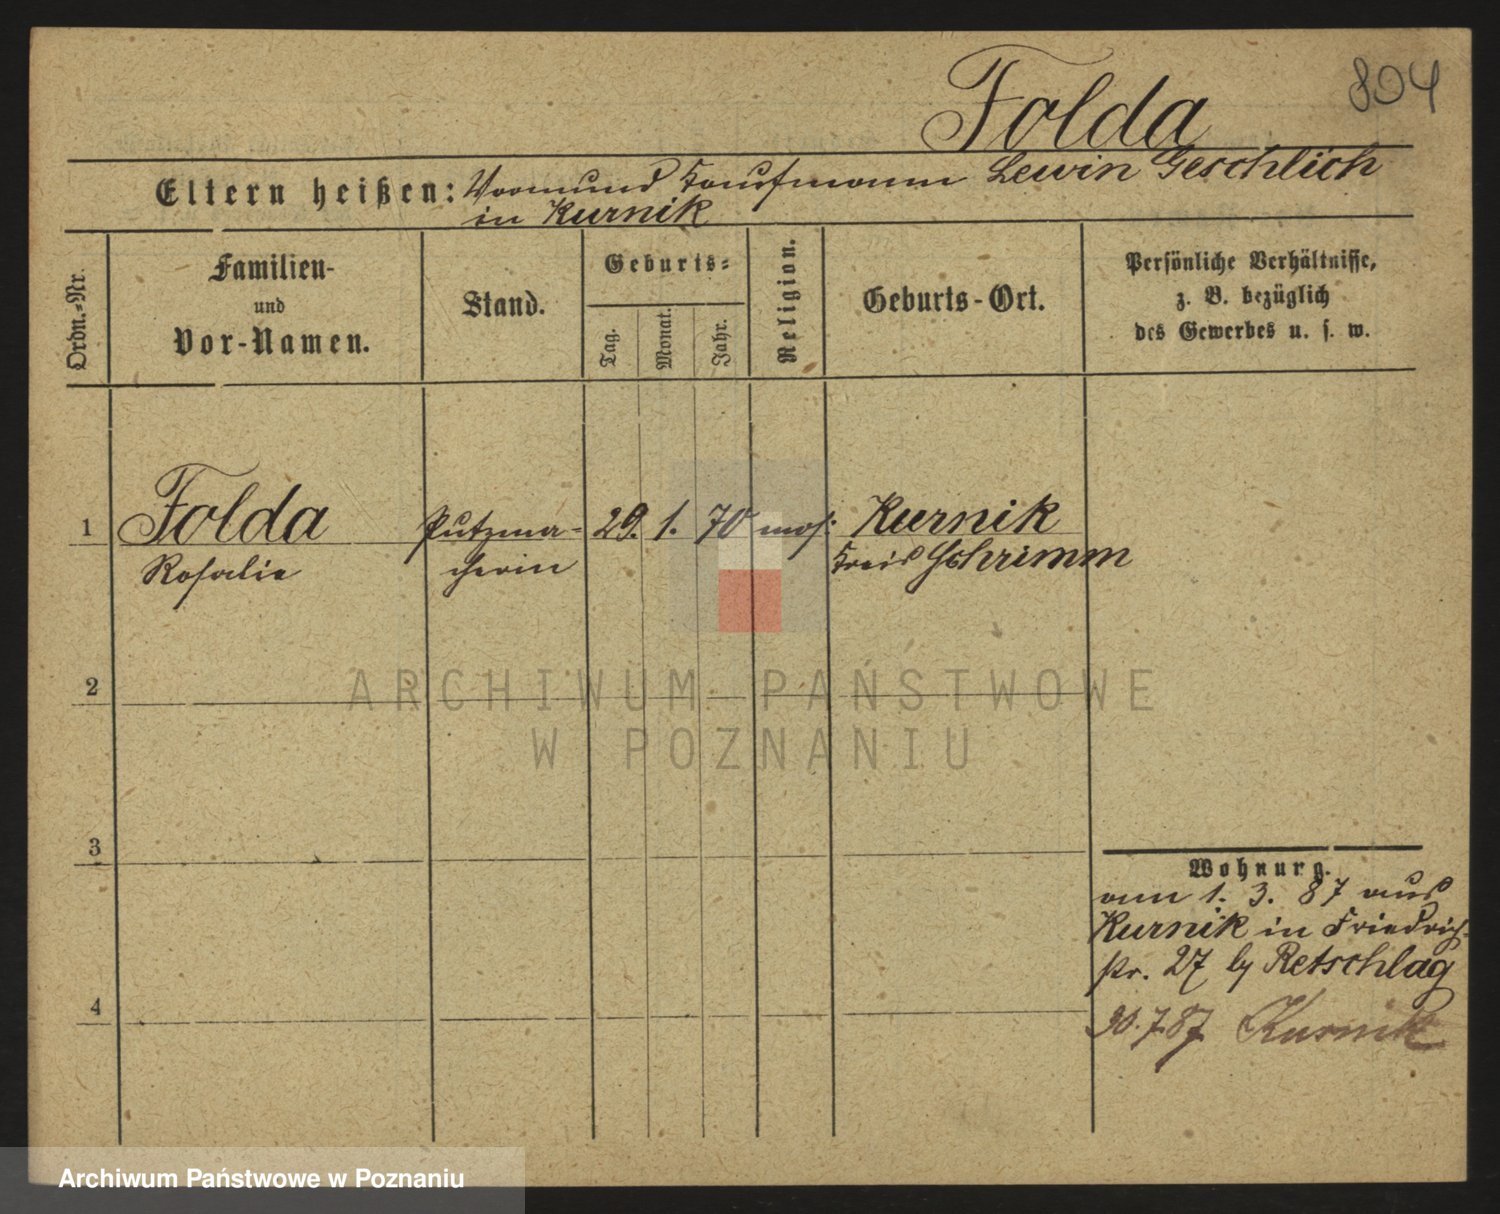 804
Folda
Eltern heißen: Vormund Kaufmann Lewin Geschlich
in Kurnik
Ordn.-Nr.
Familien-
und
Vor-Namen.
Stand.
Geburts-
Tag.
Monat.
Jahr.
Religion.
Geburts-Ort.
Persönliche Verhältnisse,
z. B. bezüglich
des Gewerbes u. s. w.
1 Folda Putzma- 29. 1. 70 mos: Kurnik
Rosalie cherin Kreis Schrimm
2
ARCHIWUM PAŃSTWOWE
W POZNANIU
3
Wohnung.
am 1. 3. 87 aus
Kurnik in Friedrich-
str. 27 by Retschlag
4
30.7.87 Kurnik
Archiwum Państwowe w Poznaniu